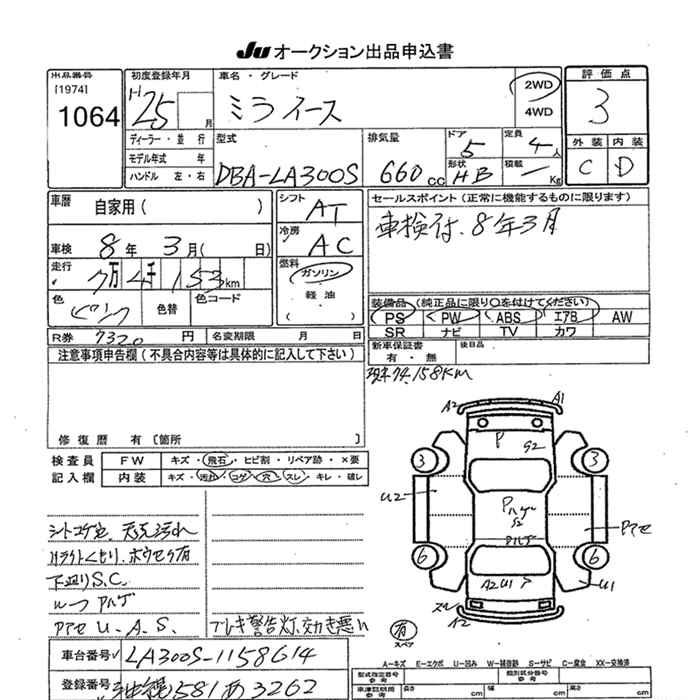 Ju オークション出品申込書
出品番号
[1974]
1064
初度登録年月
H25 月
ディーラー・並行
モデル年式 年
ハンドル 左・右
車名・グレード
ミライース
2WD
4WD
型式
DBA-LA300S
排気量
660cc
ドア
5
形状
HB
定員
4人
積載
ー Kg
評価点
3
外装 内装
C D
車歴
自家用( )
車検 8年 3月( 日)
走行
7万 4千 153km
色
ピンク
色替
色コード
シフト
AT
冷房
AC
燃料
ガソリン
軽油
( )
セールスポイント (正常に機能するものに限ります)
車検付、8年3月
装備品 (純正品に限り○を付けてください)
PS PW ABS エアB AW
SR ナビ TV カワ
R券 7320 円
名変期限 月 日
新車保証書
有・無
後日品
注意事項申告欄 (不具合内容等は具体的に記入して下さい)
修復歴 有 [箇所 ]
現車74,158KM
検査員
記入欄
FW キズ・飛石・ヒビ割・リペア跡・×要
内装 キズ・汚れ・コゲ・穴・スレ・キレ・破レ
シートコゲ穴、天汚れ
Hライトくもり、ホウセキ有
下廻りS.C.
ルーフ Pハゲ
Pアセ U.A.S.
ブレーキ警告灯、効き悪い
A2 A1
P G2
3 3
U2
Pハゲ
S2
Pアセ
Pハゲ
6 6
A2U1 P
U1
スレ
A2
有
スペア
A=キズ E=エクボ U=凹み W=補修跡 S=サビ C=腐食 XX=交換済
車台番号 LA300S-1158614
登録番号 沖縄581あ3262
型式指定番号
参考
類別区分番号
参考
車津証明用
参考
長さ cm
幅 cm
高さ cm